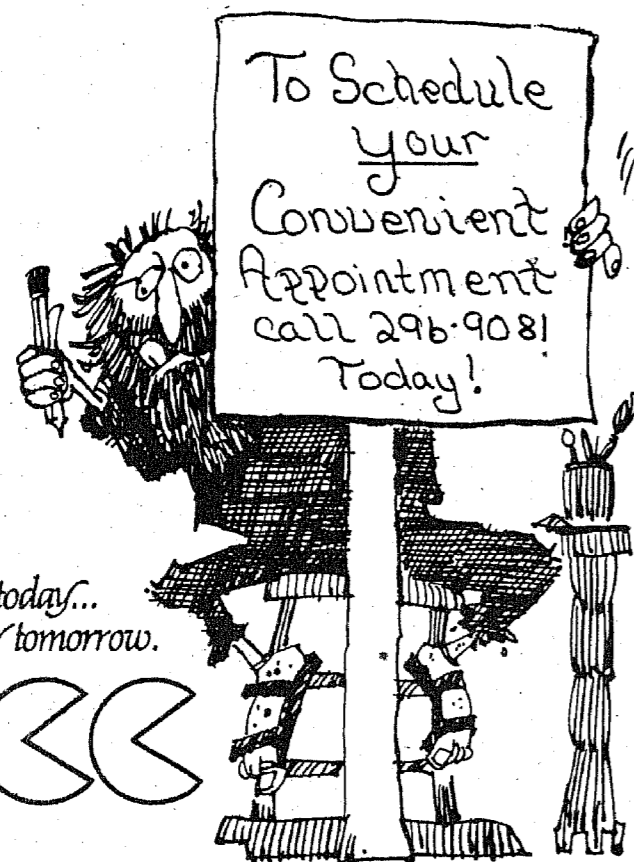 To Schedule
your
Convenient
Appointment
call 296·9081
Today!
today...
tomorrow.